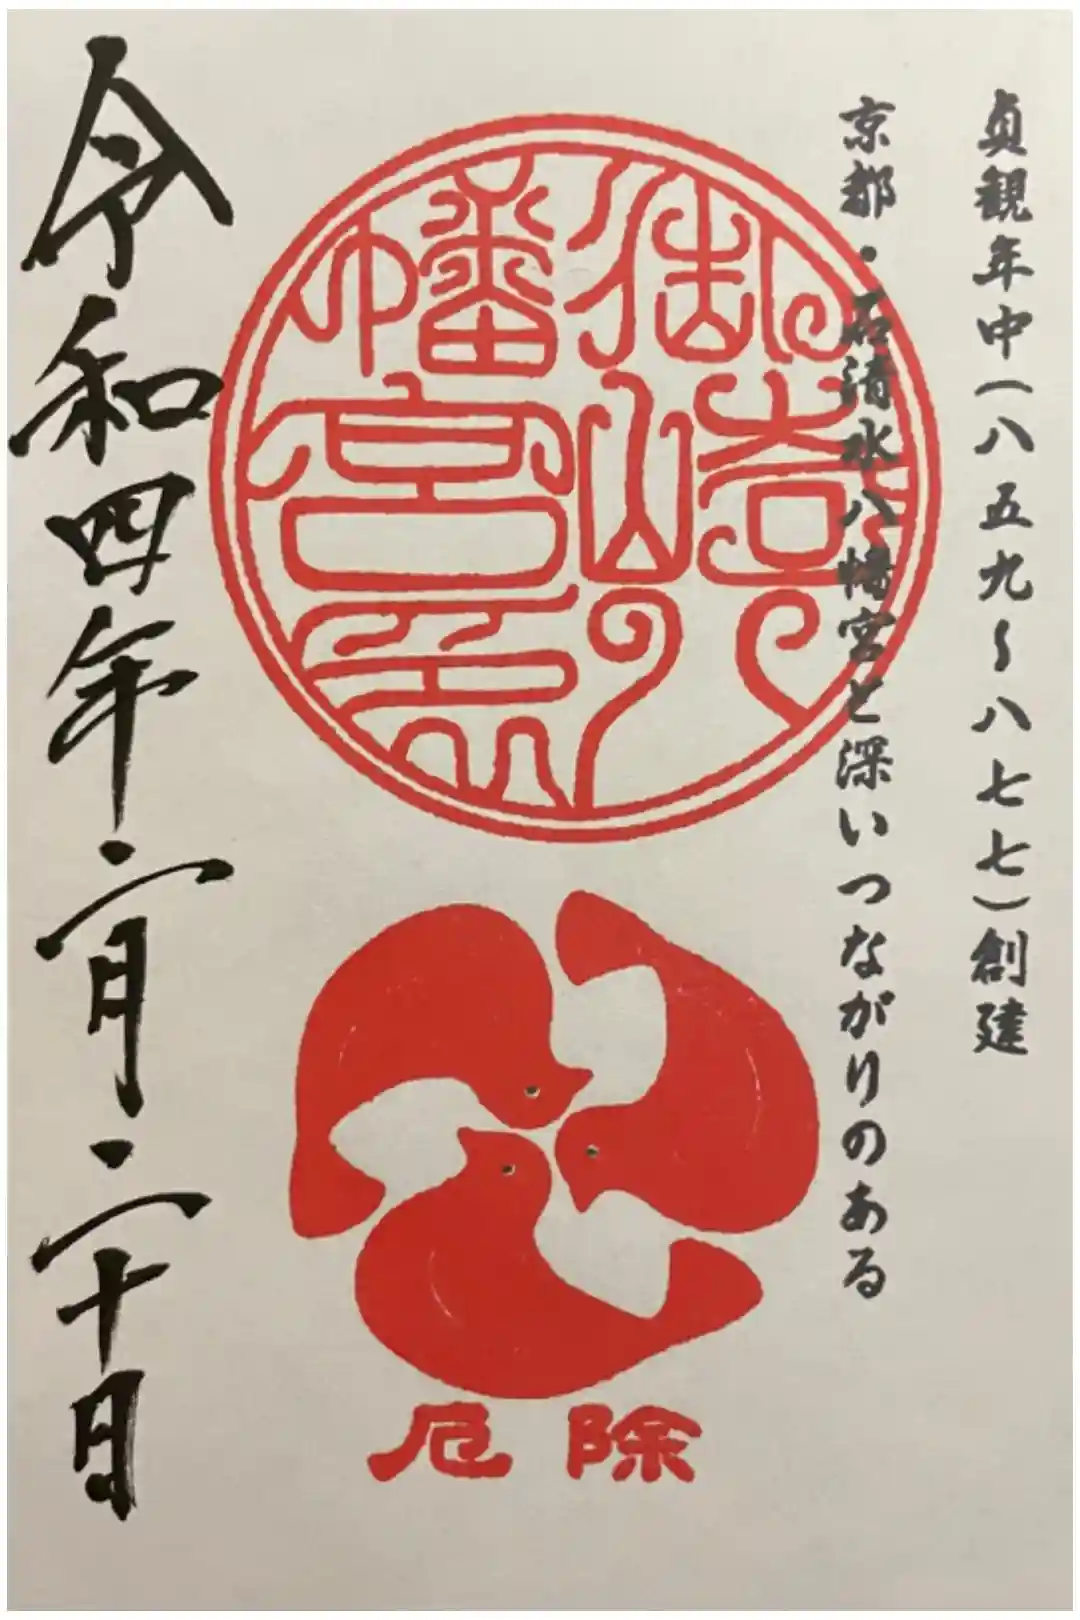 貞観年中(八五九~八七七)創建
京都・石清水八幡宮と深いつながりのある
御崎八
幡宮印
厄除
令和四年二月二十日